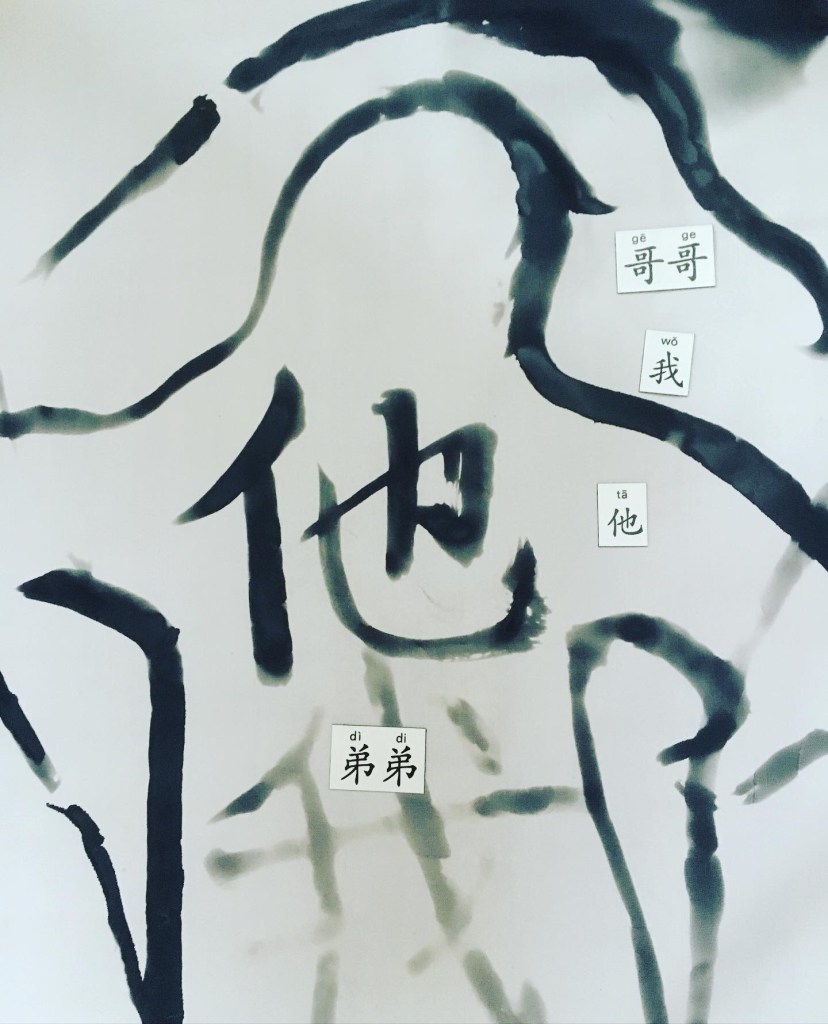 gē ge
哥哥
wǒ
我
tā
他
他
dì di
弟弟
我